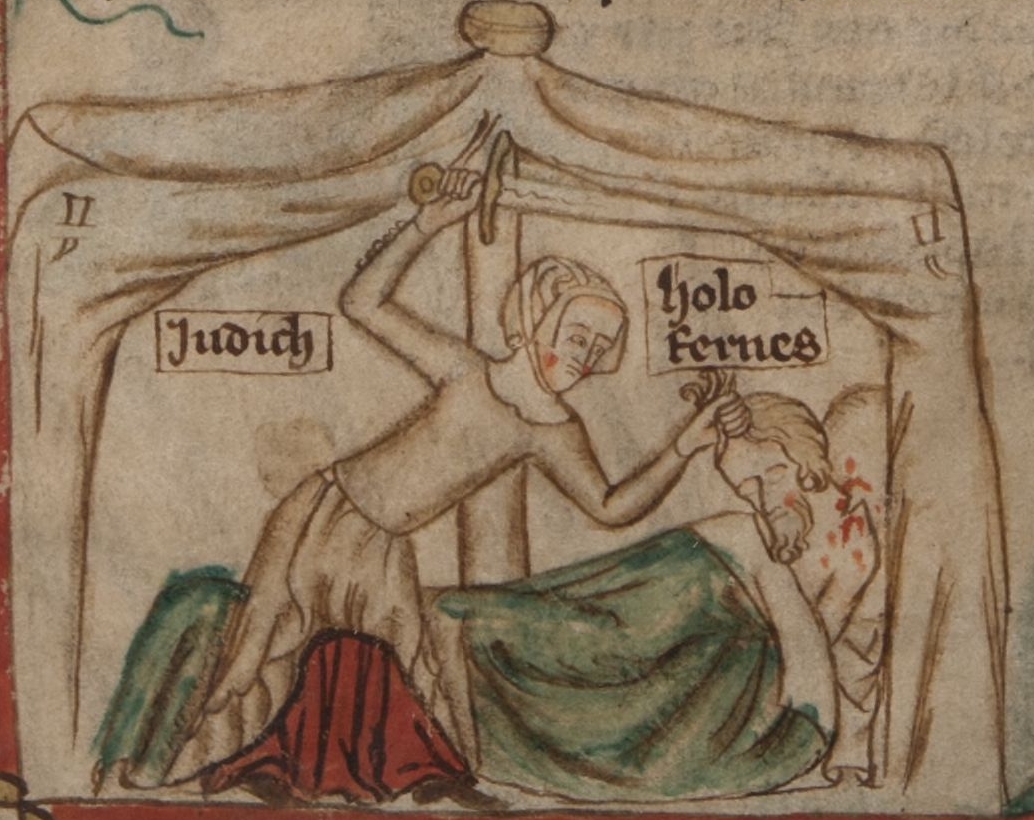 Judich
Holo
fernes